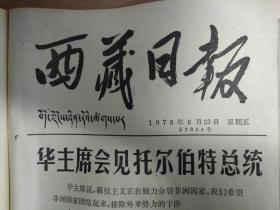 西藏日報
བོད་ལྗོངས་ཉིན་རེའི་ཚགས་པར
1978年6月23日 星期五
华主席会见托尔伯特总统
华主席说，霸权主义正在极力分裂非洲国家，我们希望
非洲国家团结起来，排除外来势力的干涉